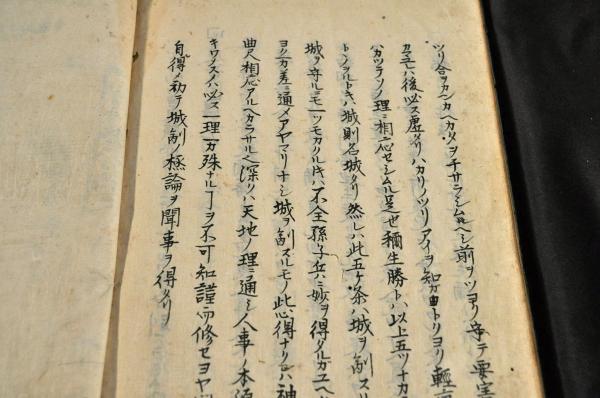 ツリ合ヲカンカヘカタヲチサラシム可シ前ヲツヨク守テ要害
カマユレハ後必ス虚タリハカリノツリアイヲ知カ由トリヨリ軽
ハカツテソノ理ニ相応セシムル是也 稱生勝トハ以上五ツナカ
トノヲルトキハ城則名城タリ 然レハ此五ケ条ハ城ヲ制スリ
城ヲ守ルニモ一ツモカクル片ハ不全孫子兵ニ妙ヲ得タルカユヘ
ヨク万差ニ通メアヤマリナシ城ヲ制スルモノ此心得ナクハ神
曲尺相応アルヘカラサル也深クハ天地ノ理ニ通シ人事ノ本源
キワメスハ必ス一理万殊ナルヿヲ不可知謹而修セヨヤ
自得メ初テ城制ノ極論ヲ聞事ヲ得タリヲ